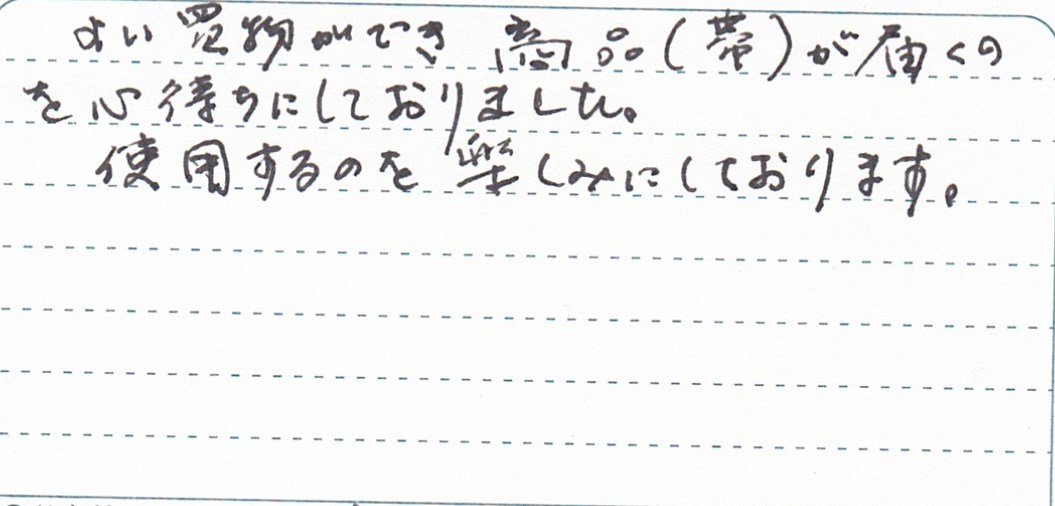 よい買物ができ 商品(帯)が届くの
を心待ちにしておりました。
使用するのを楽しみにしております。